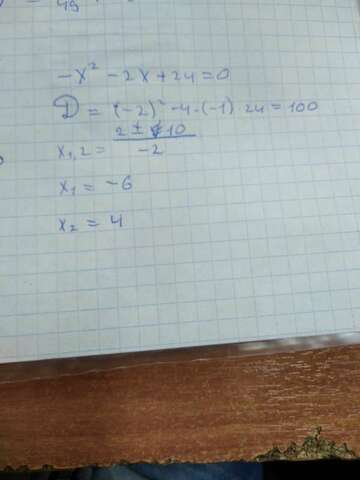 49
-x² - 2x + 24 = 0
D = (-2)² - 4·(-1) 24 = 100
x₁,₂ = (2 ± 10)/-2
x₁ = -6
x₂ = 4